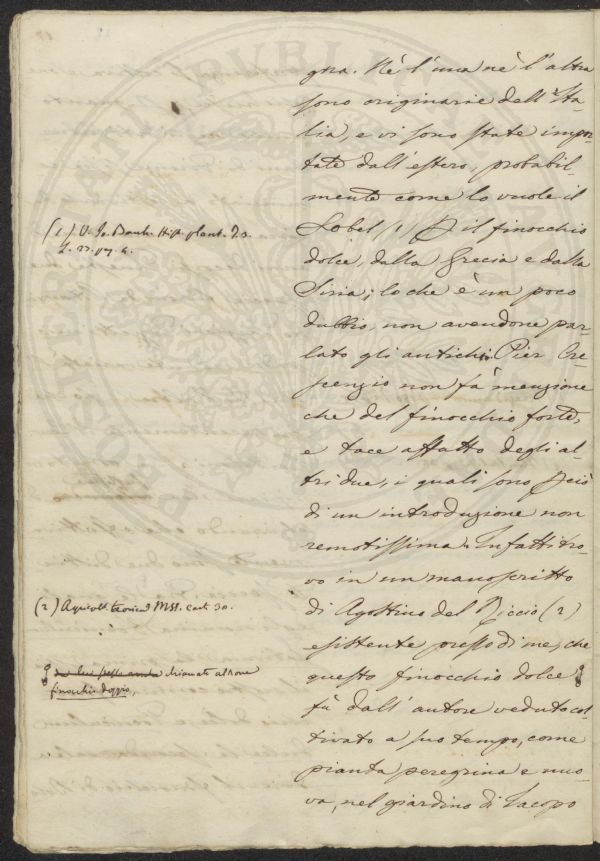 gna. Nè l'una nè l'altra
sono originarie dell'Ita-
lia, e vi sono state impor-
tate dall'estero, probabil-
mente come lo vuole il
Lobel (1) il finocchio
dolce, dalla Grecia e dalla
Siria; lo che è un poco
dubbio, non avendone par-
lato gli antichi. Pier Cre-
scenzio non fà menzione
che del finocchio forte,
e tace affatto degli al-
tri due, i quali sono perciò
di un introduzione non
remotissima. Infatti tro-
vo in un manoscritto
di Agostino del Riccio (2)
esistente presso di me, che
questo finocchio dolce
fù dall'autore veduto col-
tivato a suo tempo, come
pianta peregrina e nuo-
va, nel giardino di Iacopo
(1) V. Jo. Bauh. Hist. plant. T. 3.
L. 27. pag. 4.
(2) Agricolt. teorica MSS. cart. 30.
chiamato altrove
finocchio doppio,